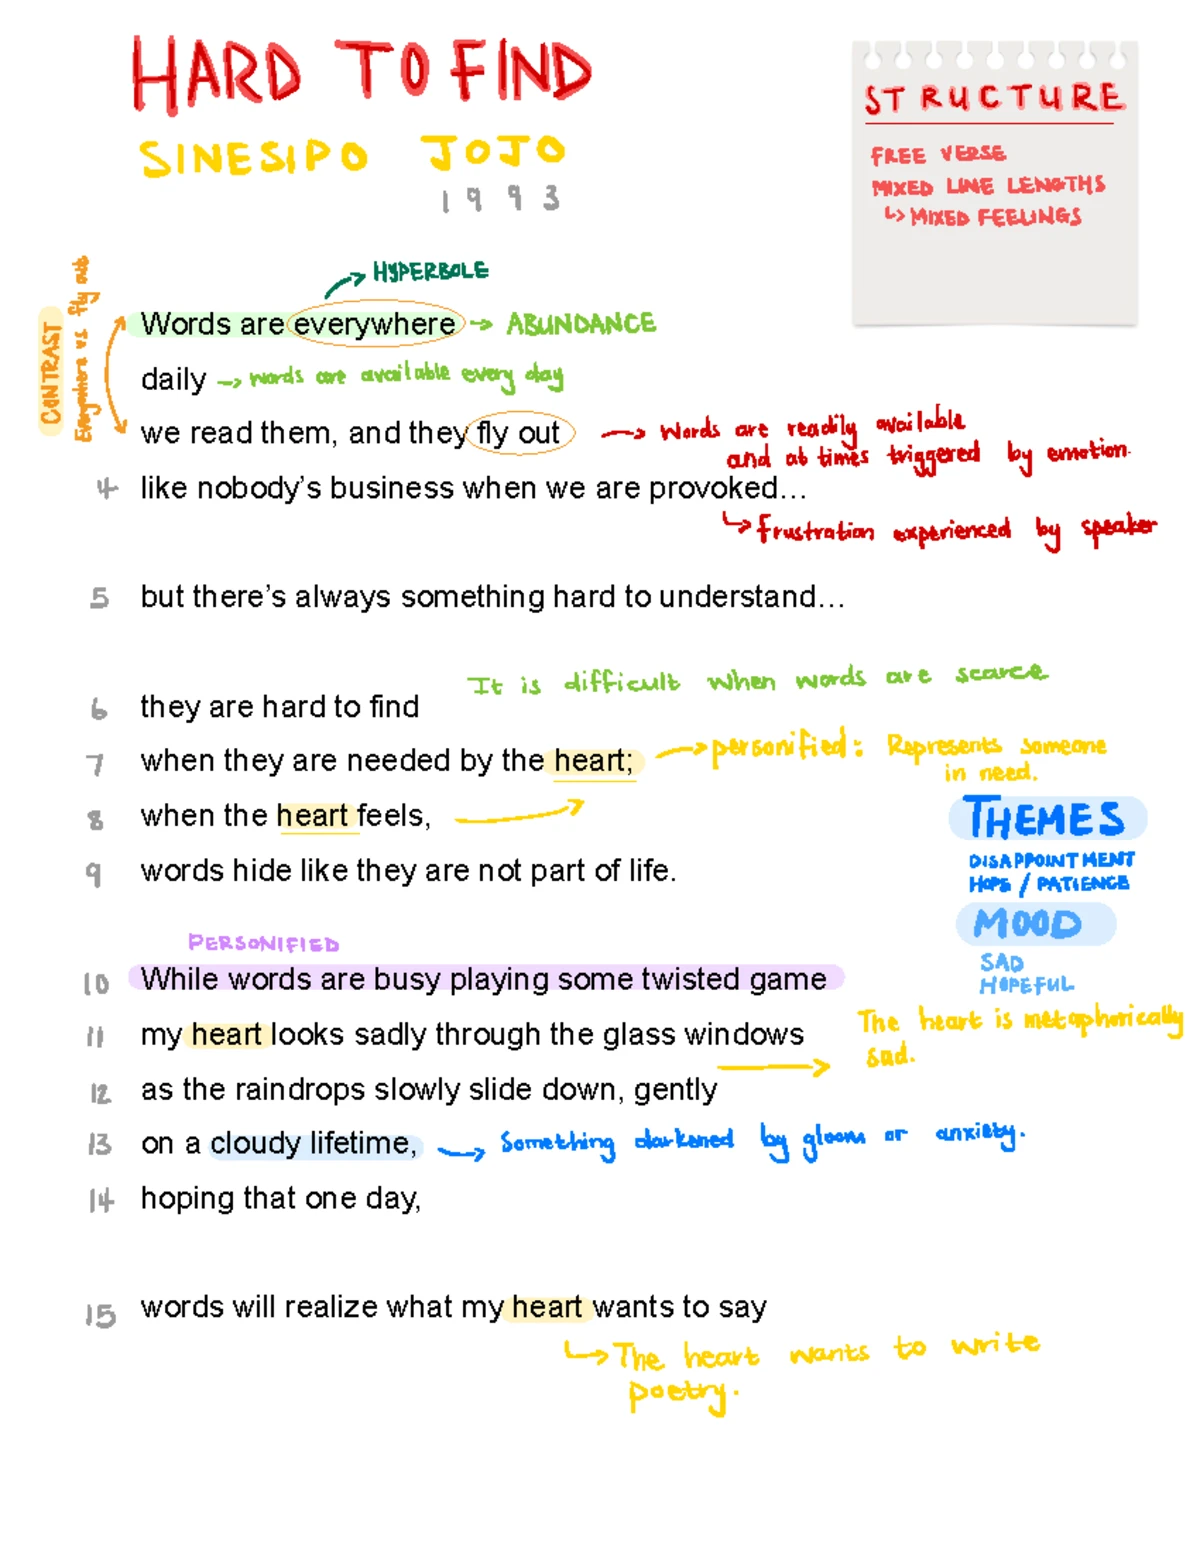 HARD TO FIND
SINESIPO JOJO
1993
STRUCTURE
FREE VERSE
MIXED LINE LENGTHS
↳ MIXED FEELINGS
CONTRAST
Everywhere vs fly out
→ HYPERBOLE
Words are everywhere → ABUNDANCE
daily → words are available every day
we read them, and they fly out → Words are readily available
and at times triggered by emotion.
4 like nobody’s business when we are provoked…
↳ frustration experienced by speaker
5 but there’s always something hard to understand…
It is difficult when words are scarce
6 they are hard to find
7 when they are needed by the heart; → personified: Represents someone
in need.
8 when the heart feels,
THEMES
DISAPPOINTMENT
HOPE / PATIENCE
9 words hide like they are not part of life.
MOOD
SAD
HOPEFUL
PERSONIFIED
10 While words are busy playing some twisted game
11 my heart looks sadly through the glass windows
The heart is metaphorically
sad.
12 as the raindrops slowly slide down, gently
13 on a cloudy lifetime, → Something darkened by gloom or anxiety.
14 hoping that one day,
15 words will realize what my heart wants to say
↳ The heart wants to write
poetry.